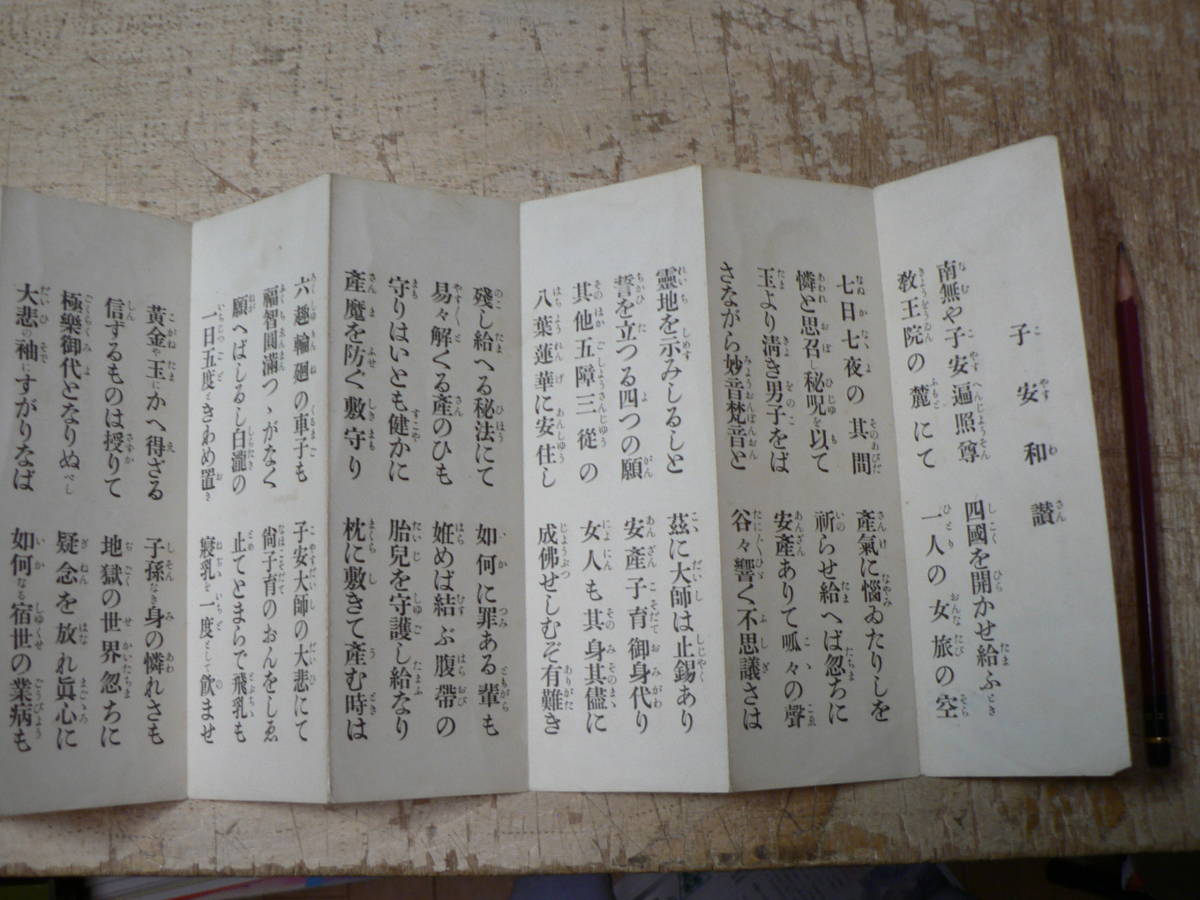 子安和讃
南無や子安遍照尊 四國を開かせ給ふ
教王院の麓にて 一人の女旅の空
七日七夜の其間 產氣に惱ゐたりしを
憐と思召し秘呪を以て 祈らせ給へば忽ちに
玉より淸き男子をば 安產ありて呱々の聲
さながら妙音梵音と 谷々響く不思議さは
靈地を示みしるしと 茲に大師は止錫あり
誓を立つる四つの願 安產子育御身代り
其他五障三從の 女人も其身其儘に
八葉蓮華に安住し 成佛せしむぞ有難き
殘し給へる秘法にて 如何に罪ある輩も
易々解くる產のひも 姙めば結ぶ腹帶の
守りはいとも健かに 胎兒を守護し給なり
產魔を防ぐ敷守り 枕に敷きて產む時は
六趣輪廻の車子も 子安大師の大悲にて
福智圓滿つゝがなく 尙子育のおんをしゑ
願へばしるし白瀧の 止てとまらで飛乳も
一日五度ときわめ置き 寢乳を一度として飮ませ
黃金や玉にかへ得ざる 子孫なき身の憐れさも
信ずるものは授りて 地獄の世界忽ちに
極樂御代となりぬべし 疑念を放れ眞心に
大悲の袖にすがりなば 如何なる宿世の業病も